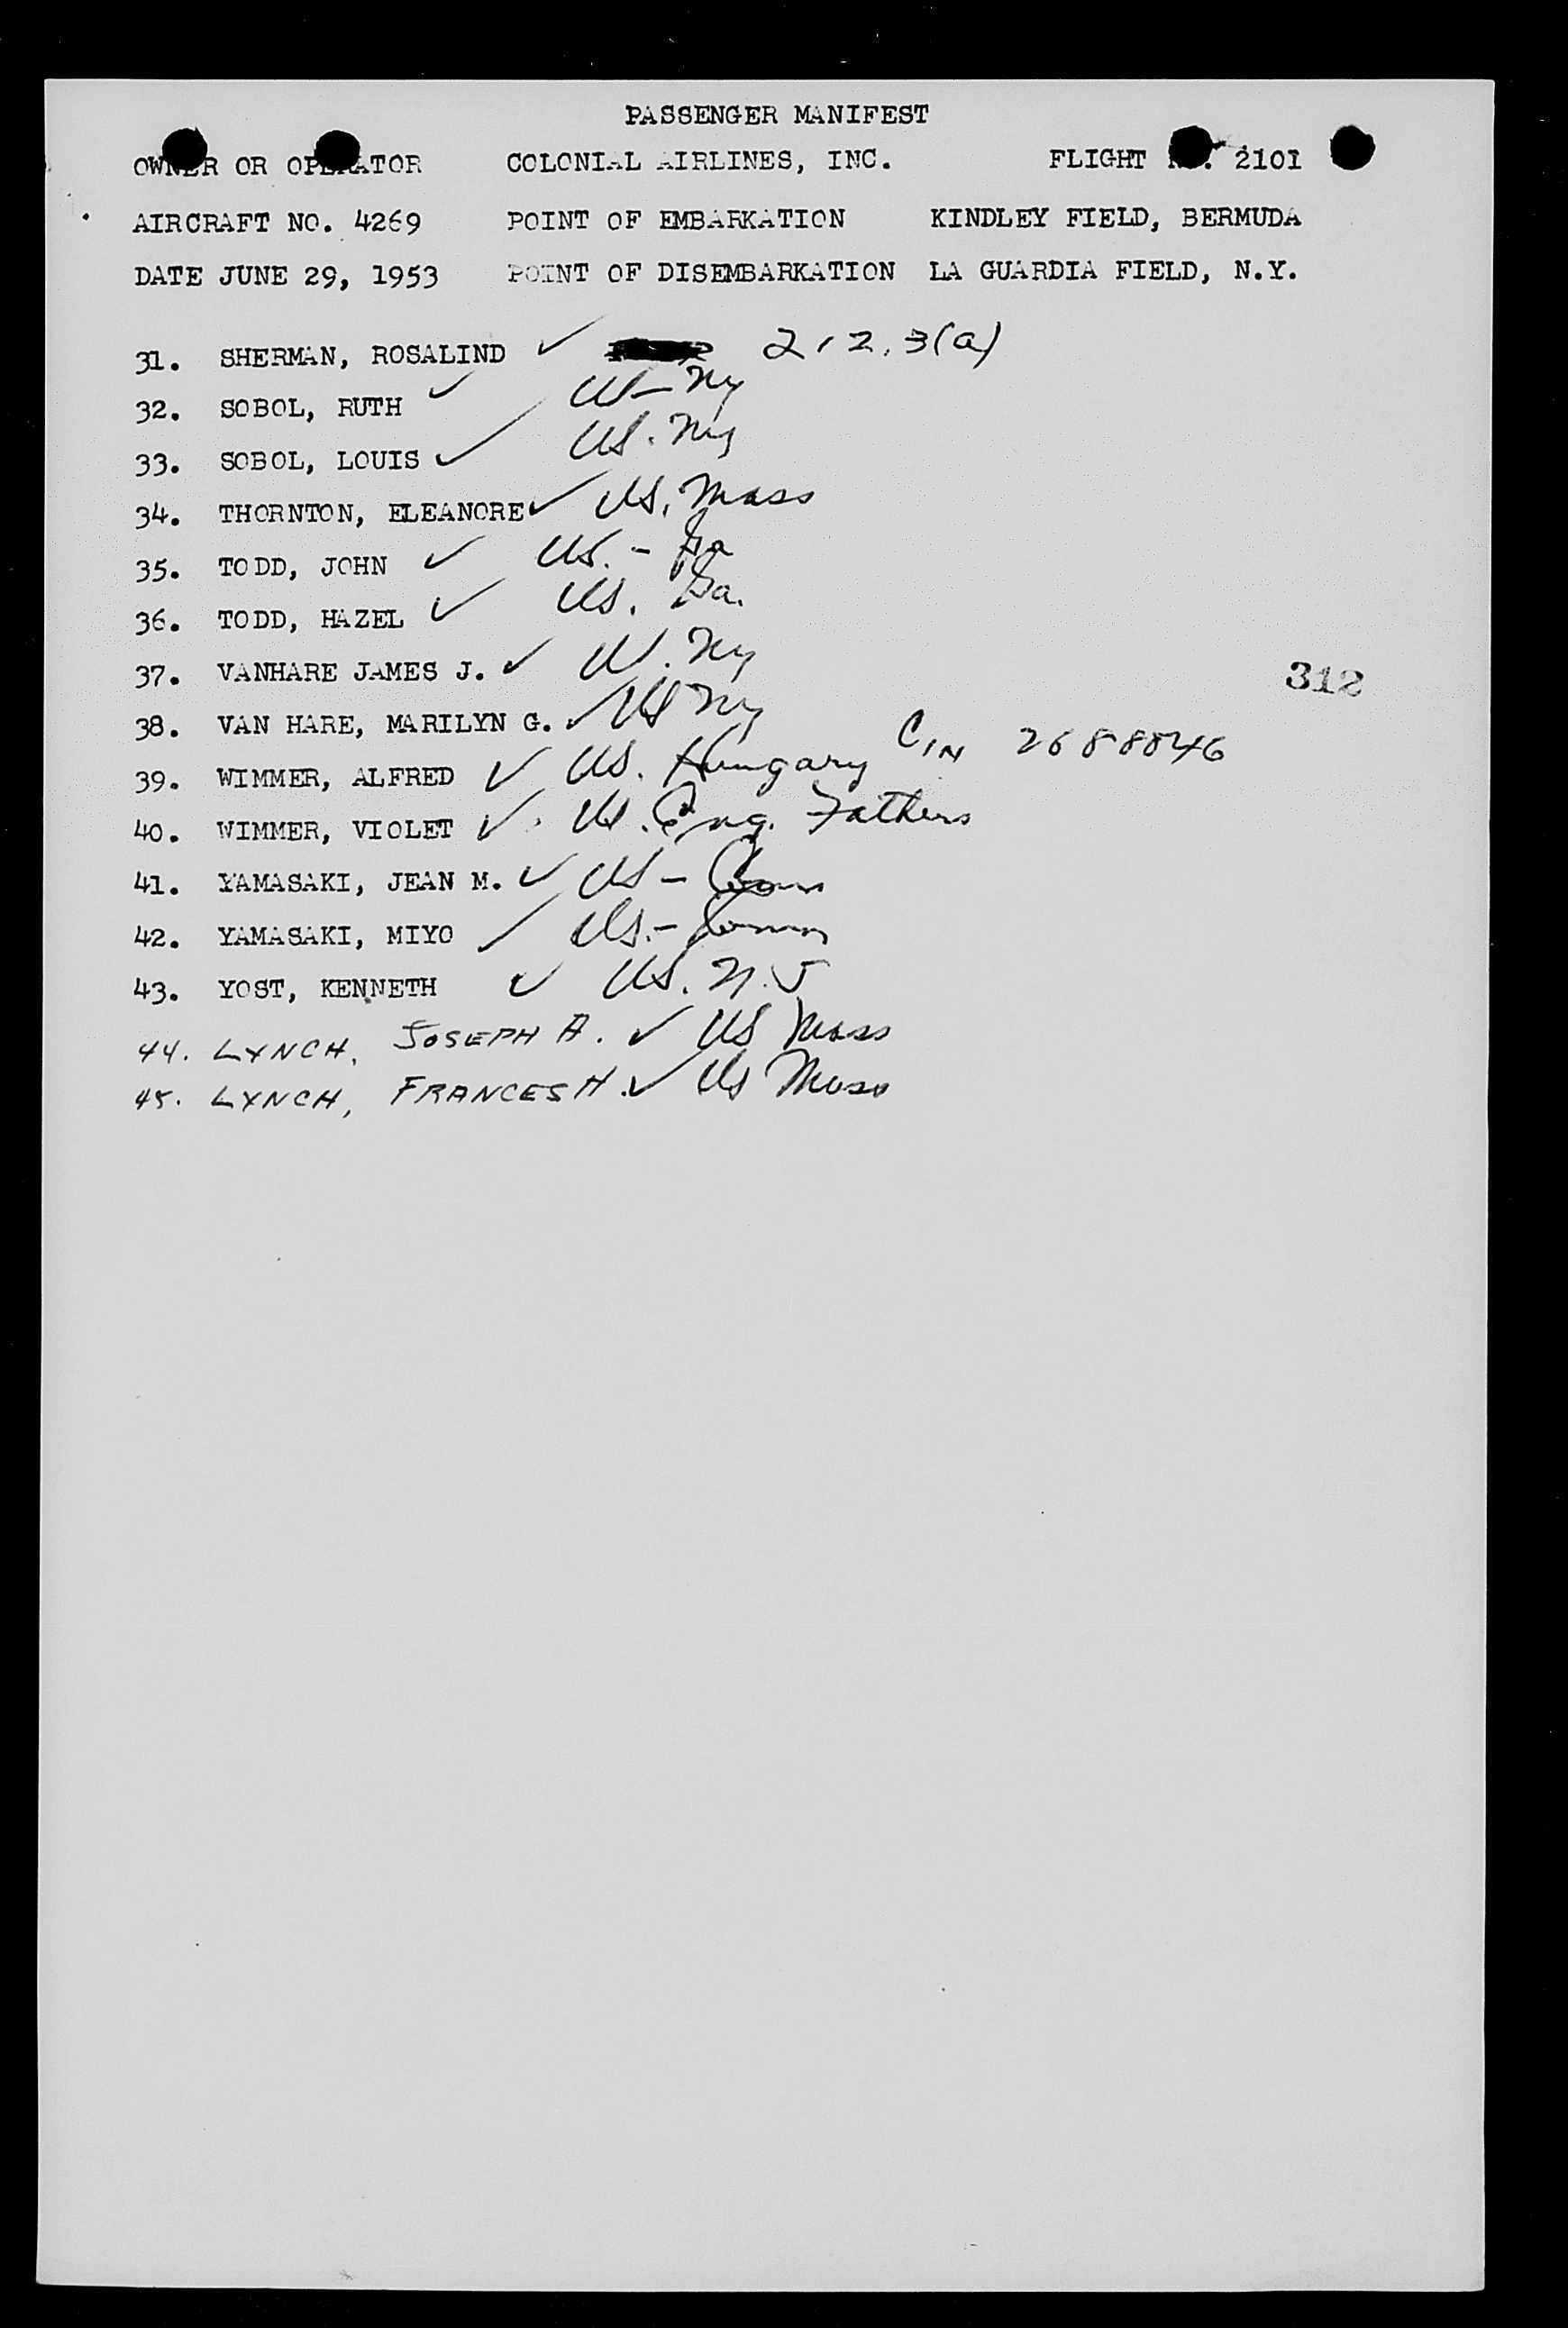 PASSENGER MANIFEST
OWNER OR OPERATOR COLONIAL AIRLINES, INC. FLIGHT NO. 2101
AIRCRAFT NO. 4269 POINT OF EMBARKATION KINDLEY FIELD, BERMUDA
DATE JUNE 29, 1953 POINT OF DISEMBARKATION LA GUARDIA FIELD, N.Y.
31. SHERMAN, ROSALIND ✓ 212.3(a)
32. SOBOL, RUTH ✓ US - NY
33. SOBOL, LOUIS ✓ US. NY
34. THORNTON, ELEANORE ✓ US. Mass
35. TODD, JOHN ✓ US. -
36. TODD, HAZEL ✓ US.
37. VANHARE JAMES J. ✓ US. NY
38. VAN HARE, MARILYN G. ✓ US NY
312
39. WIMMER, ALFRED ✓ US. Hungary CIN 2688846
40. WIMMER, VIOLET ✓ US. Eng. Fathers
41. YAMASAKI, JEAN M. ✓ US - Conn
42. YAMASAKI, MIYO ✓ US. - Conn
43. YOST, KENNETH ✓ US. N.J
44. LYNCH, JOSEPH A. ✓ US Mass
45. LYNCH, FRANCES H. ✓ US Mass